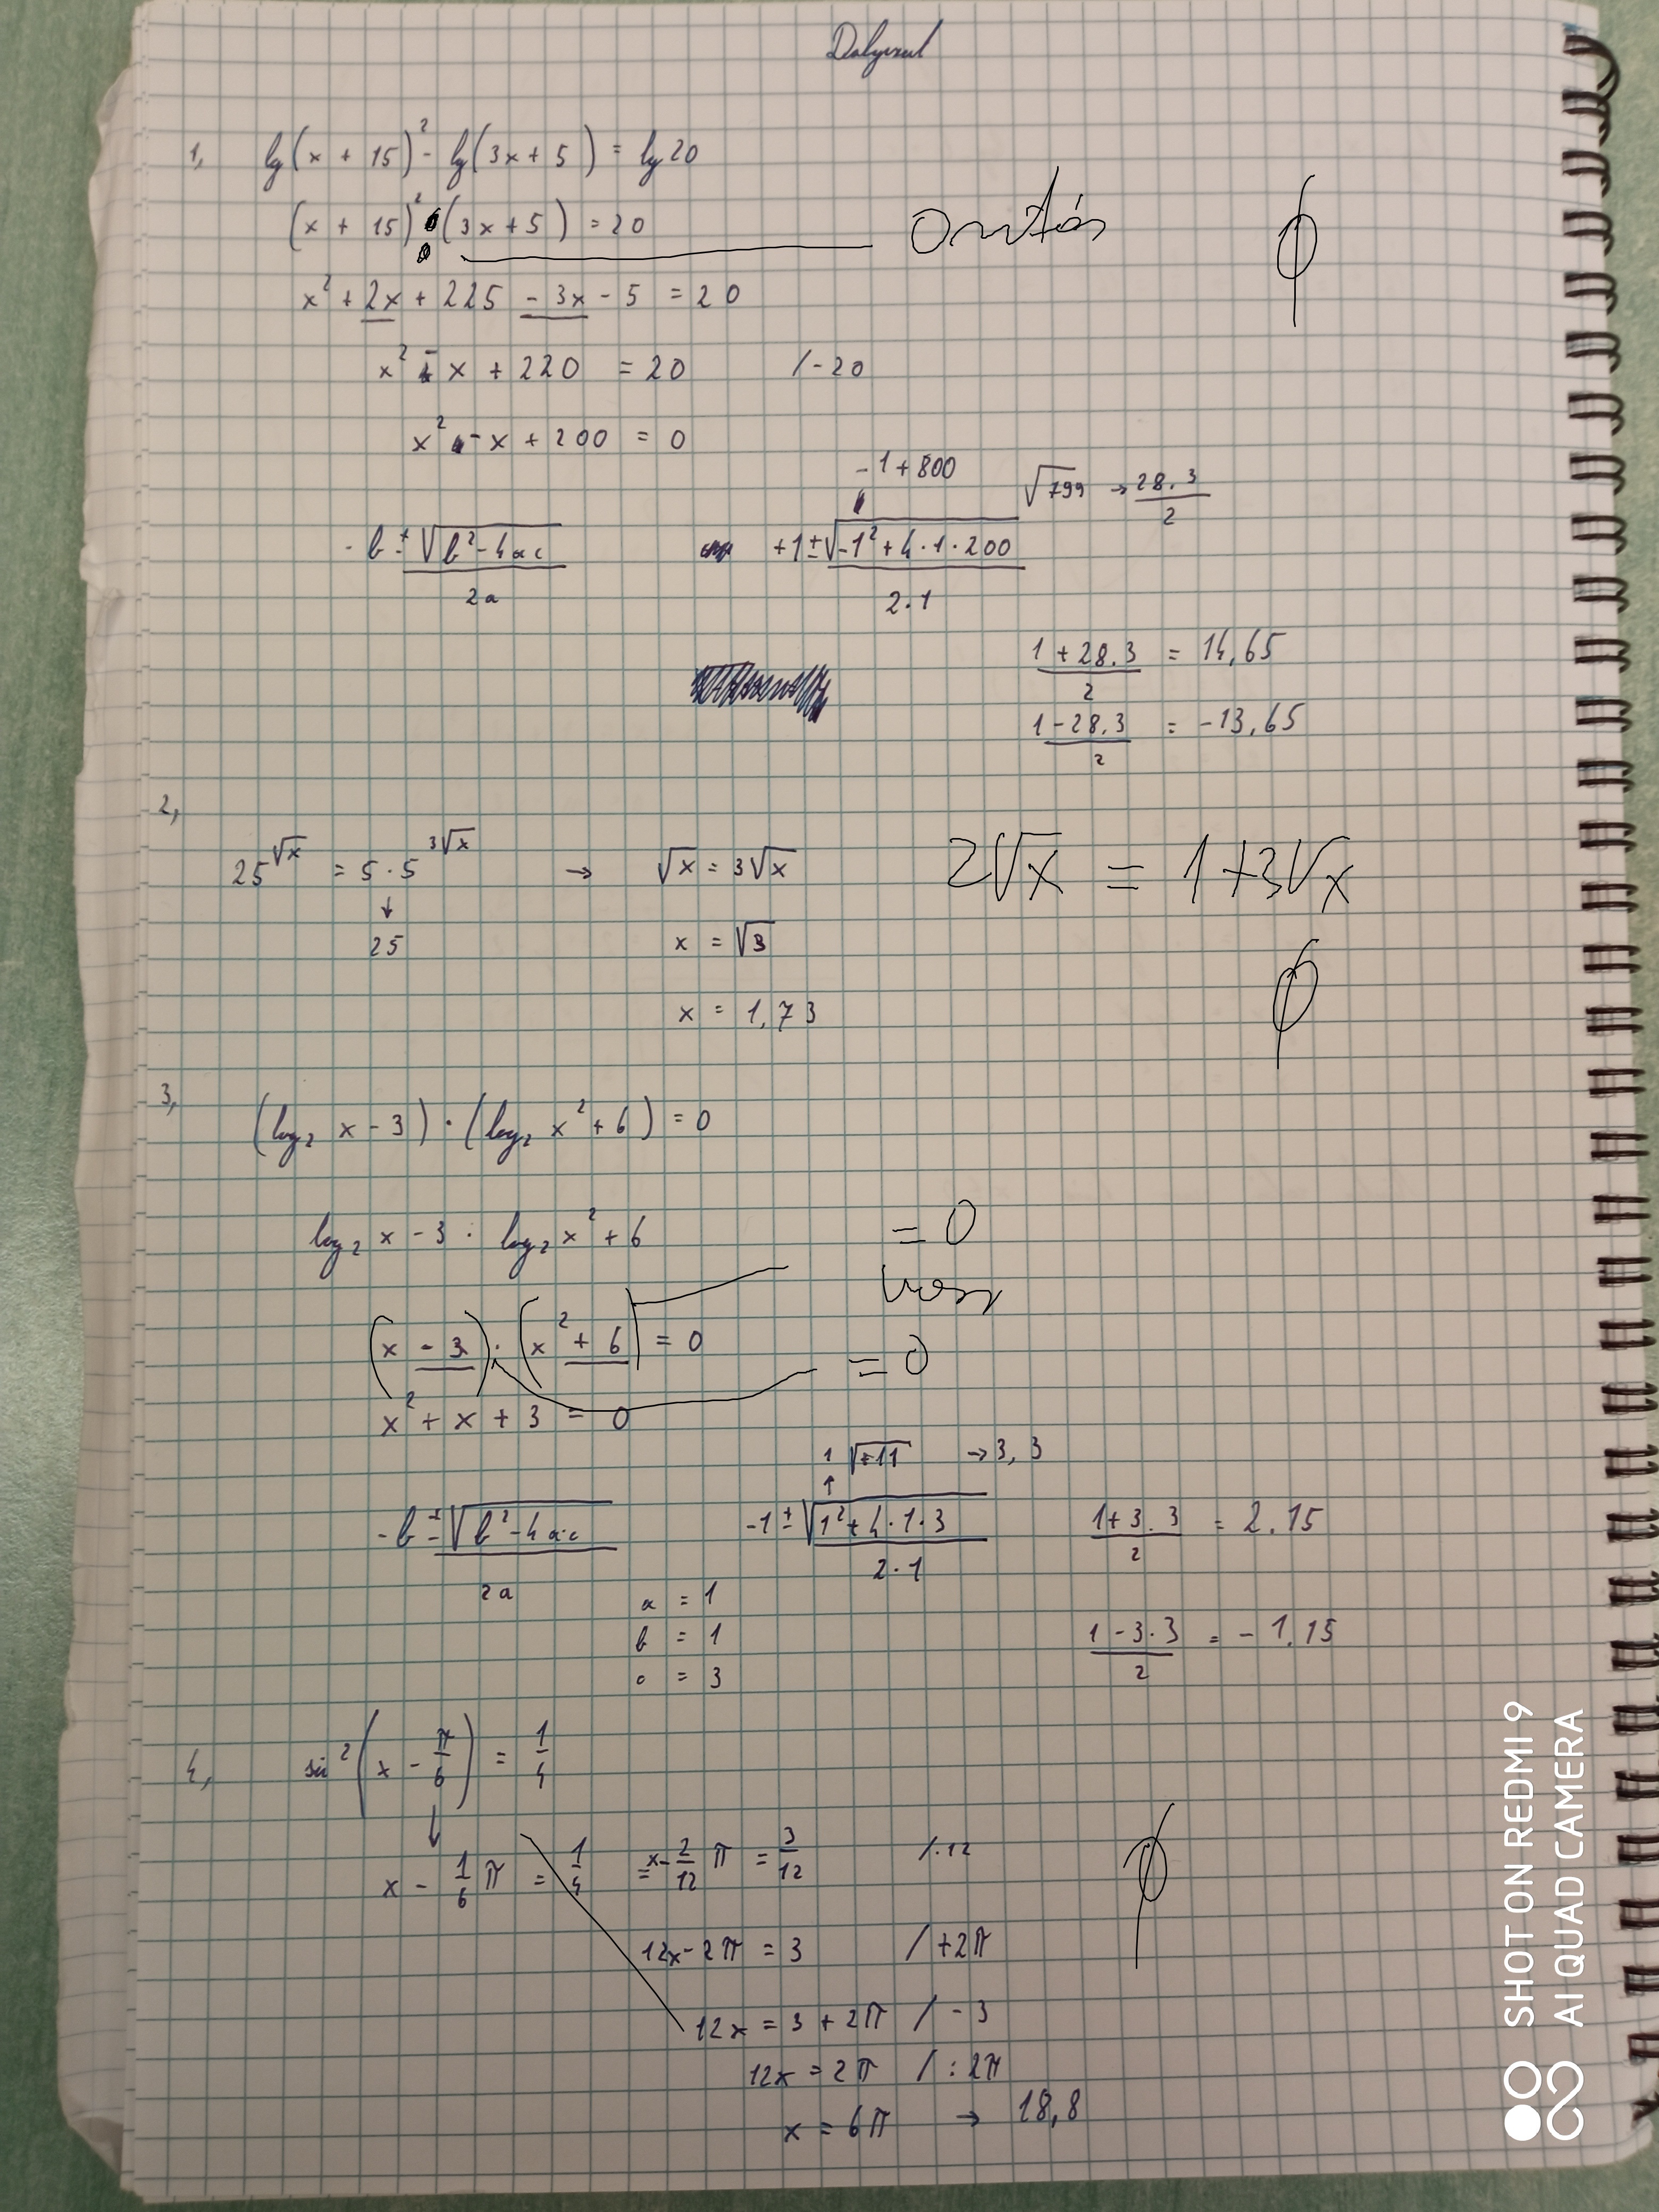 Dolgozat
1, lg(x + 15)² - lg(3x + 5) = lg 20
(x + 15)² : (3x + 5) = 20 osztás ϕ
x² + 2x + 225 - 3x - 5 = 20
x² - x + 220 = 20 /-20
x² - x + 200 = 0
-1 + 800 √799 → 28.3/2
-b ± √(b² - 4ac) / 2a +1 ± √(-1² + 4·1·200) / 2·1
(1 + 28.3)/2 = 14,65
(1 - 28.3)/2 = -13,65
2,
25^√x = 5 · 5^(3√x) → √x = 3√x 2√x = 1 + 3√x
↓
25 x = √3 ϕ
x = 1,73
3, (log₂ x - 3) · (log₂ x² + 6) = 0
log₂ x - 3 : log₂ x² + 6 = 0
vagy
(x - 3) · (x² + 6) = 0 = 0
x² + x + 3 = 0
1 √-11 → 3,3
↑
-b ± √(b² - 4a·c) / 2a -1 ± √(1² + 4·1·3) / 2·1 (1 + 3.3)/2 = 2.15
a = 1
b = 1 (1 - 3.3)/2 = -1.15
c = 3
4, sin²(x - π/6) = 1/4
↓
x - 1/6 π = 1/4 = x - 2/12 π = 3/12 /·12 ϕ
12x - 2π = 3 / +2π
12x = 3 + 2π / - 3
12x = 2π / : 2π
x = 6π → 18,8
SHOT ON REDMI 9
AI QUAD CAMERA